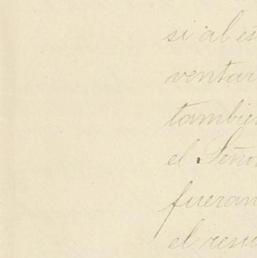 si al es
ventar
tambien
el Seño
fueran
el resu